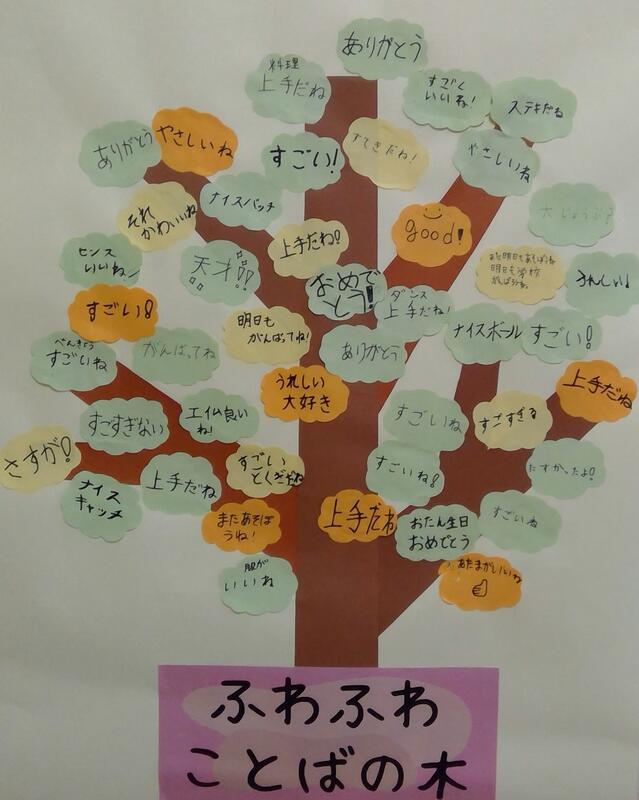 ありがとう
料理
上手だね
すごく
いいね！
ステキだね
ありがとう
やさしいね
すごい！
すてきだね！
やさしいね
それ
かわいいね
ナイスパッチ
上手だね！
good!
大じょうぶ？
センス
いいね！
天才!!
おめで
とう！
ダンス
上手だね！
明日も学校
うれしい！
すごい！
明日も
がんばってね！
ありがとう
ナイスボール
すごい！
べんきょう
すごいね
がんばってね
うれしい
大好き
上手だね
すごすぎない
エイム良い
ね！
すごいね
すごすぎる
さすが！
ナイス
キャッチ
上手だね
すごい
とくぎだね
すごいね！
たすかったよ！
またあそぼ
うね！
上手だね
おたん生日
おめでとう
すごいね
服が
いいね
あたまがいいね
ふわふわ
ことばの木